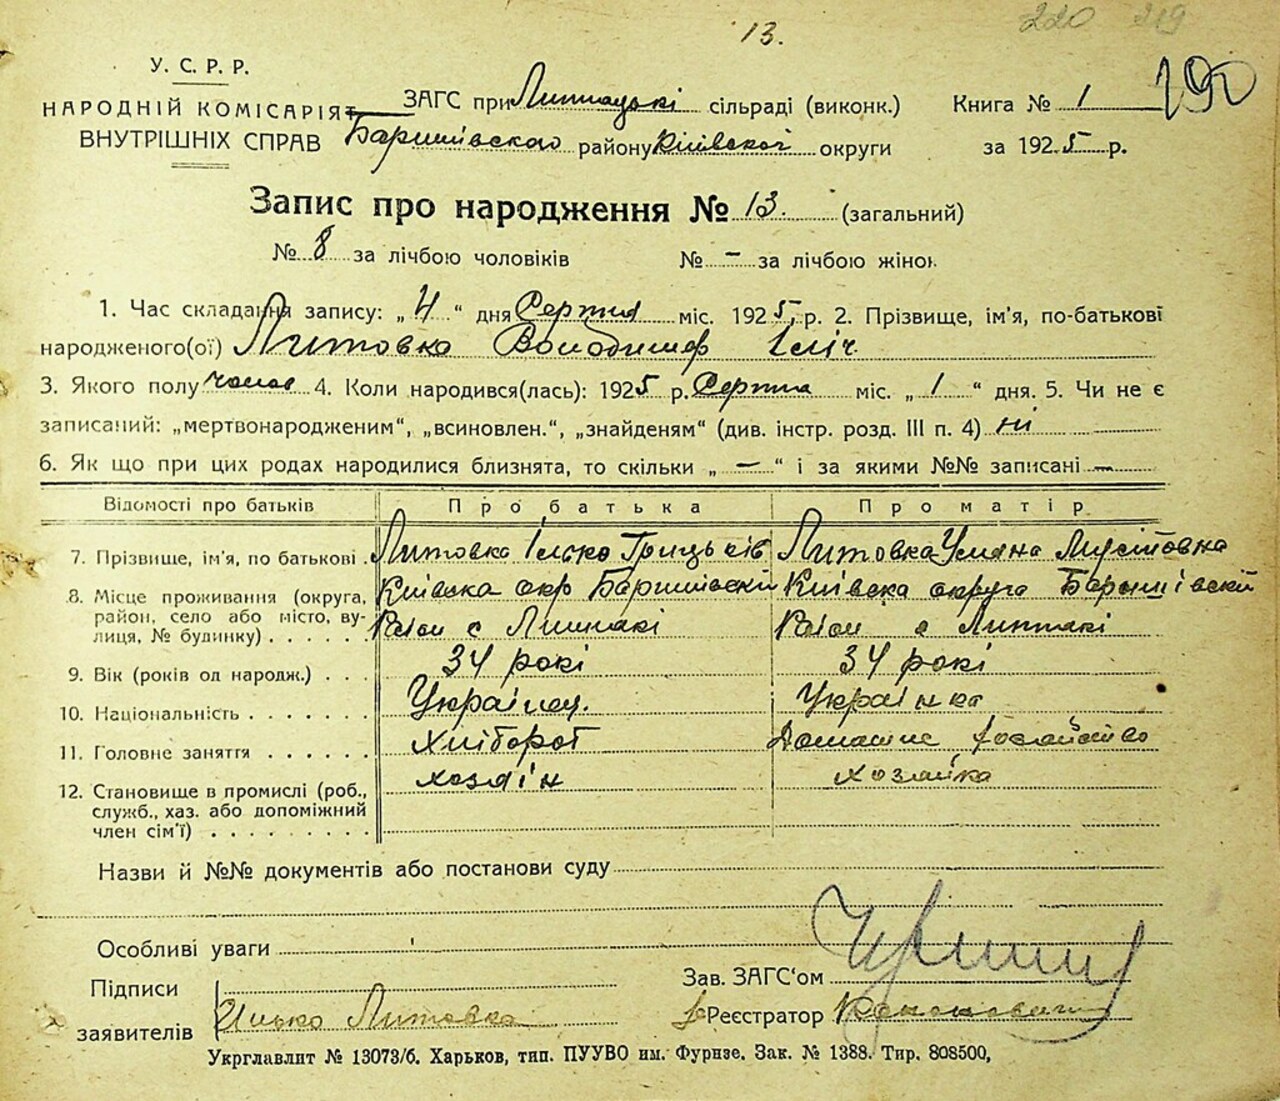 13. 220 219
У. С. Р. Р.
НАРОДНІЙ КОМІСАРІЯТ
ВНУТРІШНІХ СПРАВ
ЗАГС при Литвацькі сільраді (виконк.) Книга № 1 190
Баришівского району Київскої округи за 1925 р.
Запис про народження № 13. (загальний)
№ 8 за лічбою чоловіків № – за лічбою жінок
1. Час складання запису: „4“ дня Серпня міс. 1925 р. 2. Прізвище, ім'я, по-батькові
народженого(ої) Литовка Володимер Ілліч
3. Якого полу 4. Коли народився(лась): 1925 р. Серпня міс. „1“ дня. 5. Чи не є
записаний: „мертвонародженим“, „всиновлен.“, „знайденям“ (див. інстр. розд. III п. 4) ні
6. Як що при цих родах народилися близнята, то скільки „–“ і за якими №№ записані –
Відомості про батьків Про батька Про матір
7. Прізвище, ім'я, по батькові Литовка Ілько Грицьків Литовка Уляна
8. Місце проживання (округа, Київска окр Баришівскій Київска округа Баришівскій
район, село або місто, ву-
лиця, № будинку) Район с Район с
9. Вік (років од народж.) 34 рокі 34 рокі
10. Національність Українец. Українка
11. Головне заняття Хлібороб Домашне хозайство
12. Становище в промислі (роб., хозяін хозайка
служб., хаз. або допоміжний
член сім'ї)
Назви й №№ документів або постанови суду
Особливі уваги
Підписи
заявителів Илько Литовка
Зав. ЗАГС'ом
Реєстратор
Укрглавлит № 13073/б. Харьков, тип. ПУУВО им. Фурнзе. Зак. № 1388. Тир. 808500,